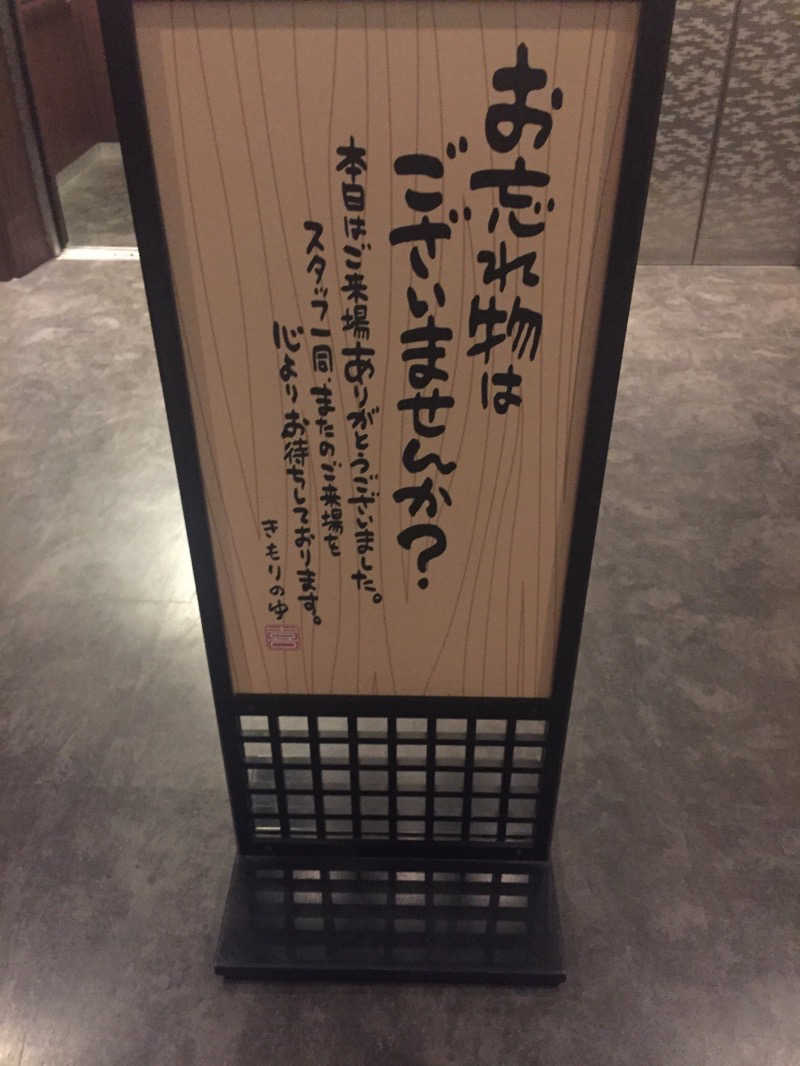 お忘れ物は
ございませんか？
本日はご来場ありがとうございました。
スタッフ一同、またのご来場を
心よりお待ちしております。
きもりのゆ